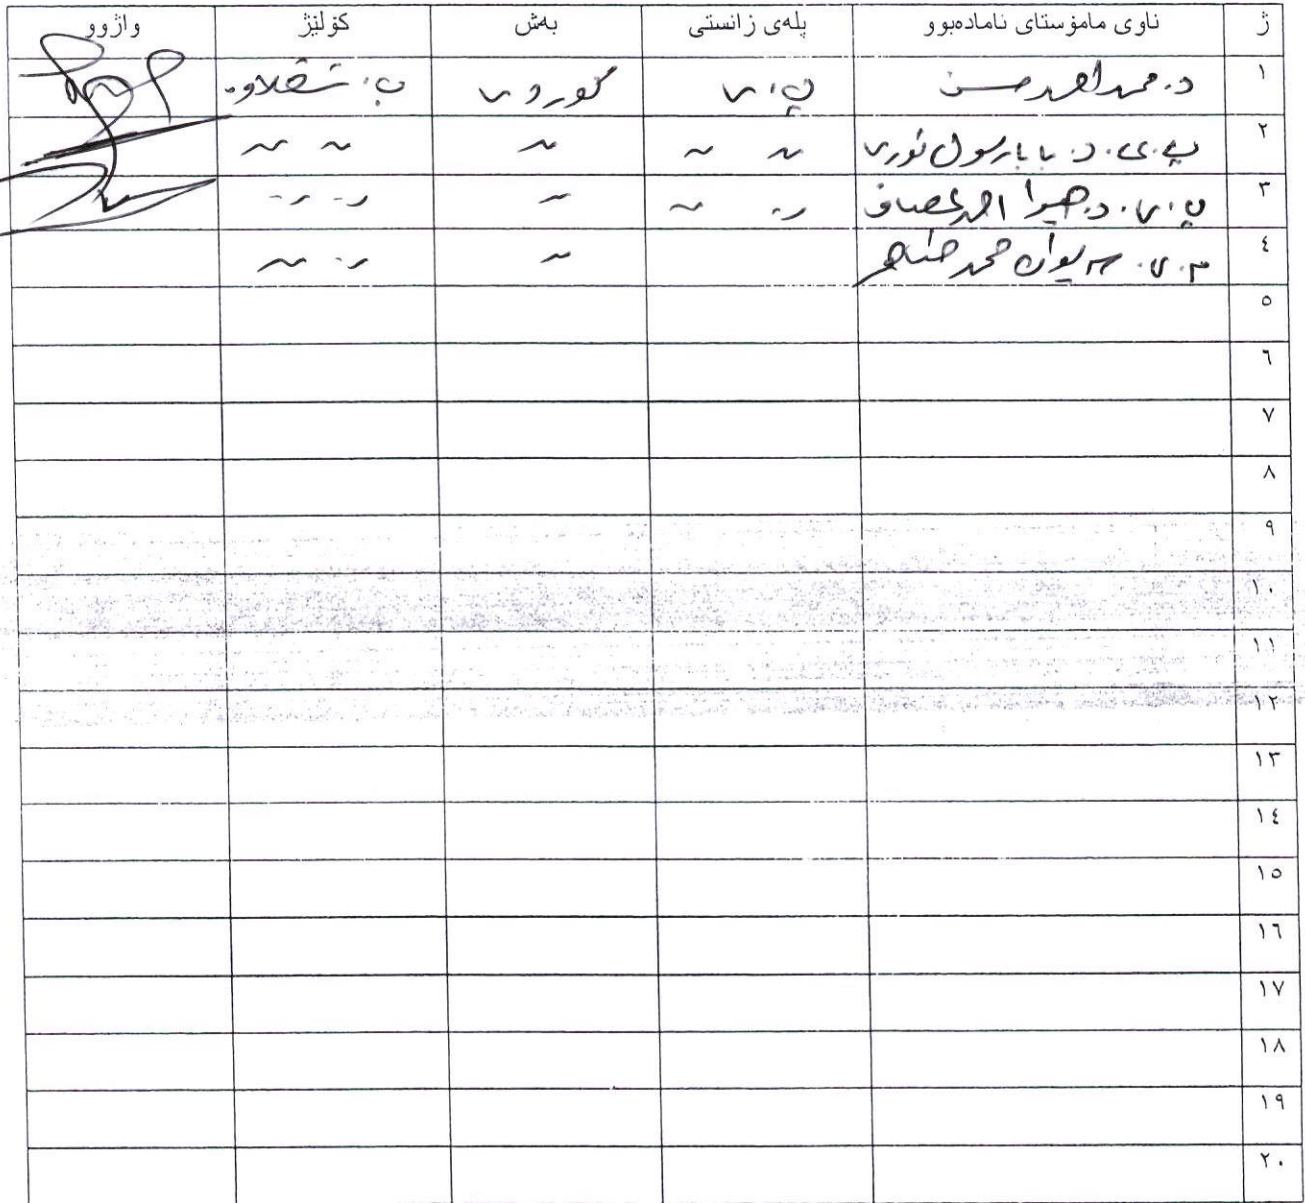 ژ ناوی مامۆستای ئامادەبوو پلەی زانستی بەش کۆلێژ واژوو
١ د. محمد احمد حسن پ.ی کوردی پ. شقلاوە
٢ پ.ی.د. بابارسول نوری ~ ~ ~ ~ ~
٣ پ.ی.د. هیوا احمد ~ ~ ~ ~ ~
٤ م.ی. محمد ~ ~ ~
٥
٦
٧
٨
٩
١٠
١١
١٢
١٣
١٤
١٥
١٦
١٧
١٨
١٩
٢٠